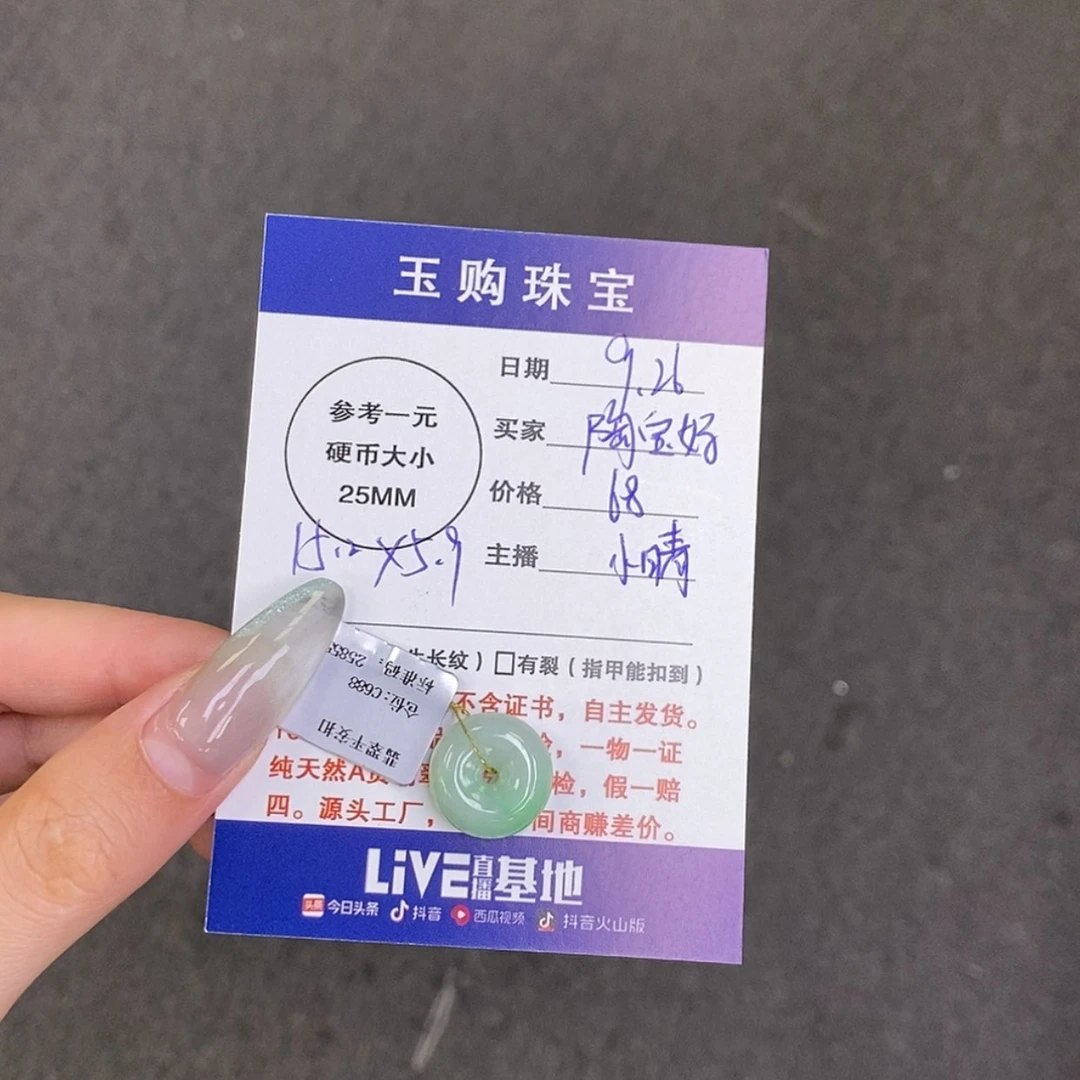 玉购珠宝
日期 9.26
参考一元
硬币大小
25MM
买家 陶宝好
价格 68
15.2×5.9
主播 小晴
生长纹）□有裂（指甲能扣到）
标准码：2585
仓位：C688
翡翠平安扣
不含证书，自主发货。
检，一物一证
纯天然A货 检，假一赔
四。源头工厂， 间商赚差价。
LiVE直播基地
头条 今日头条 抖音 西瓜视频 抖音火山版